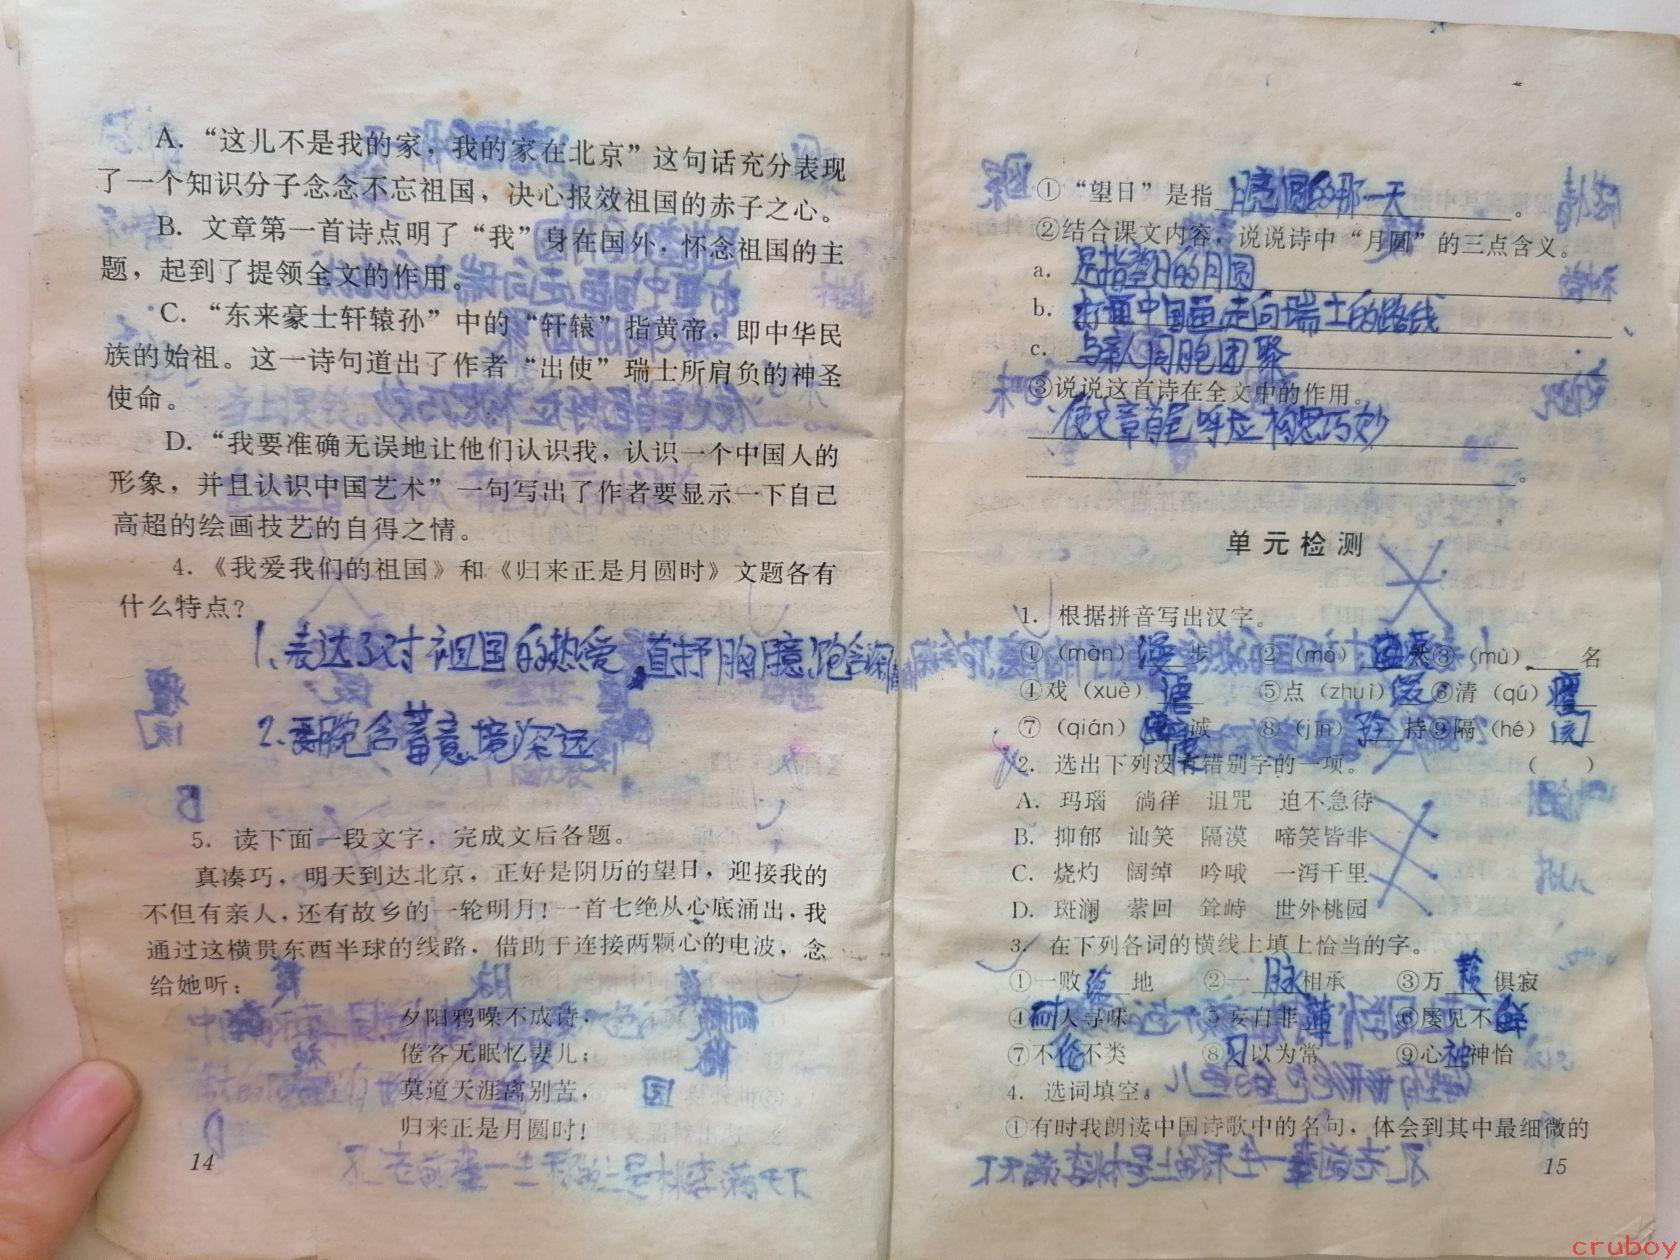 A. “这儿不是我的家，我的家在北京”这句话充分表现
了一个知识分子念念不忘祖国，决心报效祖国的赤子之心。
B. 文章第一首诗点明了“我”身在国外，怀念祖国的主
题，起到了提领全文的作用。
C. “东来豪士轩辕孙”中的“轩辕”指黄帝，即中华民
族的始祖。这一诗句道出了作者“出使”瑞士所肩负的神圣
使命。
D. “我要准确无误地让他们认识我，认识一个中国人的
形象，并且认识中国艺术”一句写出了作者要显示一下自己
高超的绘画技艺的自得之情。
4.《我爱我们的祖国》和《归来正是月圆时》文题各有
什么特点？
1、表达了对祖国的热爱，直抒胸臆，饱含深情
2、委婉含蓄意境深远
5. 读下面一段文字，完成文后各题。
真凑巧，明天到达北京，正好是阴历的望日，迎接我的
不但有亲人，还有故乡的一轮明月！一首七绝从心底涌出，我
通过这横贯东西半球的线路，借助于连接两颗心的电波，念
给她听：
夕阳鸦噪不成诗，
倦客无眠忆妻儿；
莫道天涯离别苦，
归来正是月圆时！
14
①“望日”是指 月亮圆的那一天。
②结合课文内容，说说诗中“月圆”的三点含义。
a. 是指望日的月圆
b. 打通中国画走向瑞士的路线
c. 与亲人同胞团聚
③说说这首诗在全文中的作用。
使文章首尾呼应构思巧妙
。
单元检测
1. 根据拼音写出汉字。
①（màn）漫步 ②（mò）然 ③（mù）名
④戏（xuè）谑 ⑤点（zhuì）缀 ⑥清（qú）癯
⑦（qián）虔诚 ⑧（jīn）矜持 ⑨隔（hé）阂
2. 选出下列没有错别字的一项。（ ）
A. 玛瑙 徜徉 诅咒 迫不急待
B. 抑郁 讪笑 隔漠 啼笑皆非
C. 烧灼 阔绰 吟哦 一泻千里
D. 斑澜 萦回 耸峙 世外桃园
3. 在下列各词的横线上填上恰当的字。
①一败涂地 ②一脉相承 ③万籁俱寂
④耐人寻味 ⑤妄自菲薄 ⑥屡见不鲜
⑦不伦不类 ⑧习以为常 ⑨心神怡
4. 选词填空。
①有时我朗读中国诗歌中的名句，体会到其中最细微的
15
cruboy